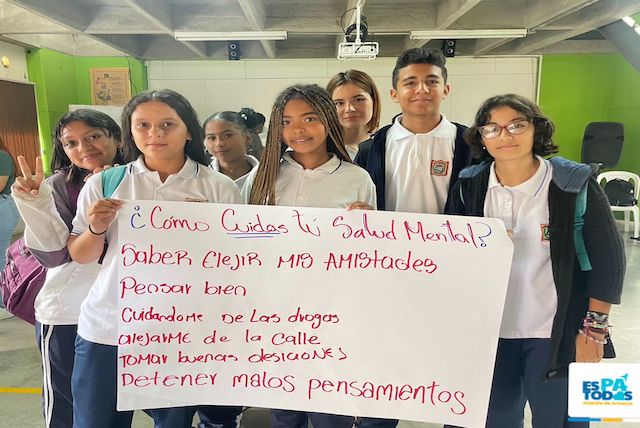 ¿Cómo Cuidas tú Salud Mental?
Saber Elejir mis amistades
Pensar bien
Cuidandome de las drogas
alejarme de la calle
Tomar buenas desiciones
Detener malos pensamientos
ESPA
TODOS